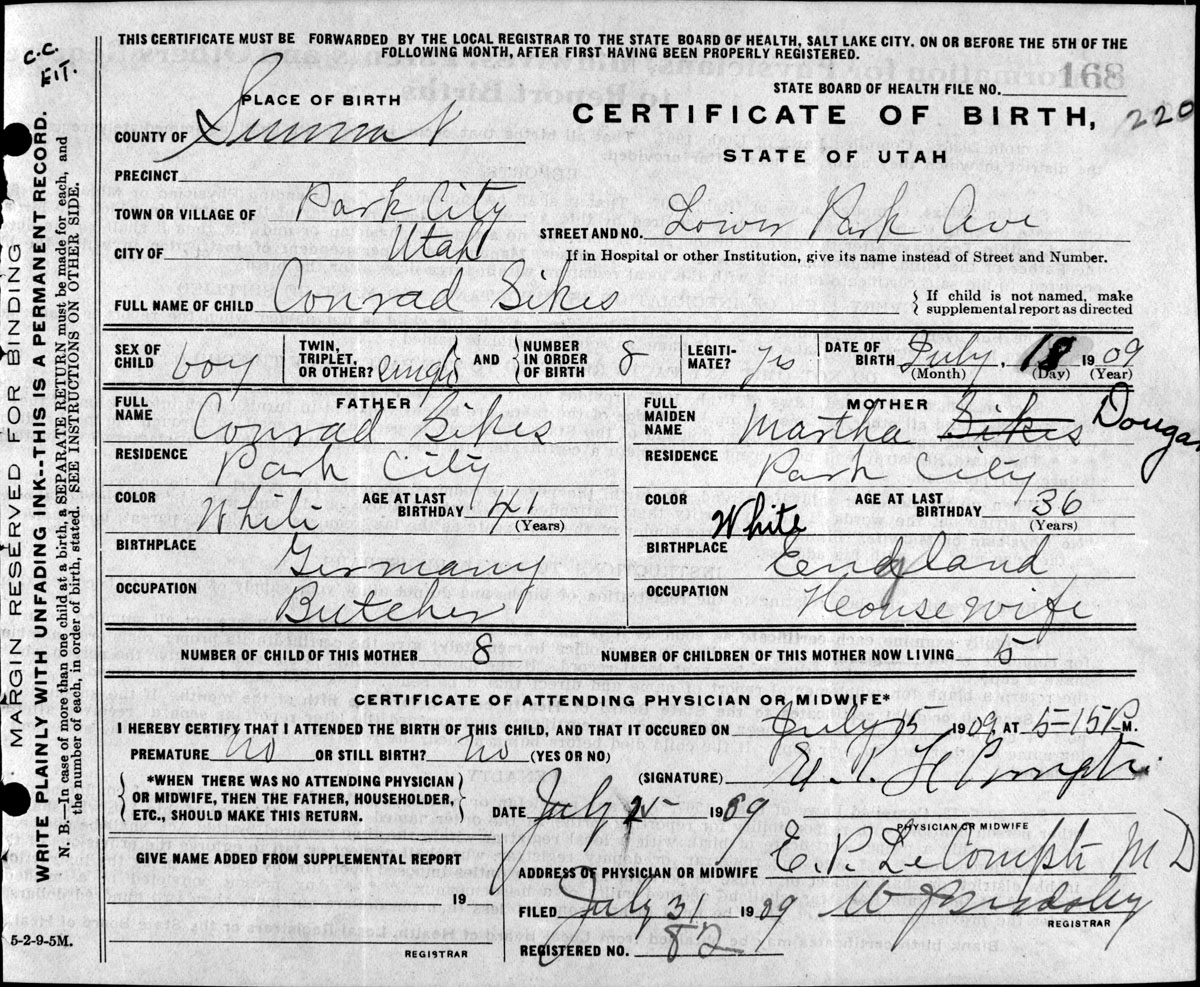 C.C.
FIT.
THIS CERTIFICATE MUST BE FORWARDED BY THE LOCAL REGISTRAR TO THE STATE BOARD OF HEALTH, SALT LAKE CITY. ON OR BEFORE THE 5TH OF THE
FOLLOWING MONTH, AFTER FIRST HAVING BEEN PROPERLY REGISTERED.
168
STATE BOARD OF HEALTH FILE NO.
220
CERTIFICATE OF BIRTH,
STATE OF UTAH
PLACE OF BIRTH
COUNTY OF Summit
PRECINCT
TOWN OR VILLAGE OF Park City
Utah
STREET AND NO. Lower Park Ave
CITY OF
If in Hospital or other Institution, give its name instead of Street and Number.
FULL NAME OF CHILD Conrad Sikes
{ If child is not named, make
supplemental report as directed
SEX OF CHILD boy
TWIN, TRIPLET, OR OTHER? single AND NUMBER IN ORDER OF BIRTH 8
LEGITI-MATE? yes
DATE OF BIRTH July 18 1909
(Month) (Day) (Year)
FATHER
FULL NAME Conrad Sikes
RESIDENCE Park City
COLOR White AGE AT LAST BIRTHDAY 41
(Years)
BIRTHPLACE Germany
OCCUPATION Butcher
MOTHER
FULL MAIDEN NAME Martha Sikes Dougan
RESIDENCE Park City
COLOR White AGE AT LAST BIRTHDAY 36
(Years)
BIRTHPLACE England
OCCUPATION Housewife
NUMBER OF CHILD OF THIS MOTHER 8 NUMBER OF CHILDREN OF THIS MOTHER NOW LIVING 5
CERTIFICATE OF ATTENDING PHYSICIAN OR MIDWIFE*
I HEREBY CERTIFY THAT I ATTENDED THE BIRTH OF THIS CHILD, AND THAT IT OCCURED ON July 1909, AT 5-15 P M.
PREMATURE No OR STILL BIRTH? No (YES OR NO)
(SIGNATURE)
{ *WHEN THERE WAS NO ATTENDING PHYSICIAN
OR MIDWIFE, THEN THE FATHER, HOUSEHOLDER,
ETC., SHOULD MAKE THIS RETURN. }
DATE July 1909
PHYSICIAN OR MIDWIFE
GIVE NAME ADDED FROM SUPPLEMENTAL REPORT
19
REGISTRAR
ADDRESS OF PHYSICIAN OR MIDWIFE E. P. LeCompte M D
FILED July 31 1909
REGISTRAR
REGISTERED NO. 82
MARGIN RESERVED FOR BINDING
WRITE PLAINLY WITH UNFADING INK--THIS IS A PERMANENT RECORD.
N. B.—In case of more than one child at a birth, a SEPARATE RETURN must be made for each, and
the number of each, in order of birth, stated. SEE INSTRUCTIONS ON OTHER SIDE.
5-2-9-5M.